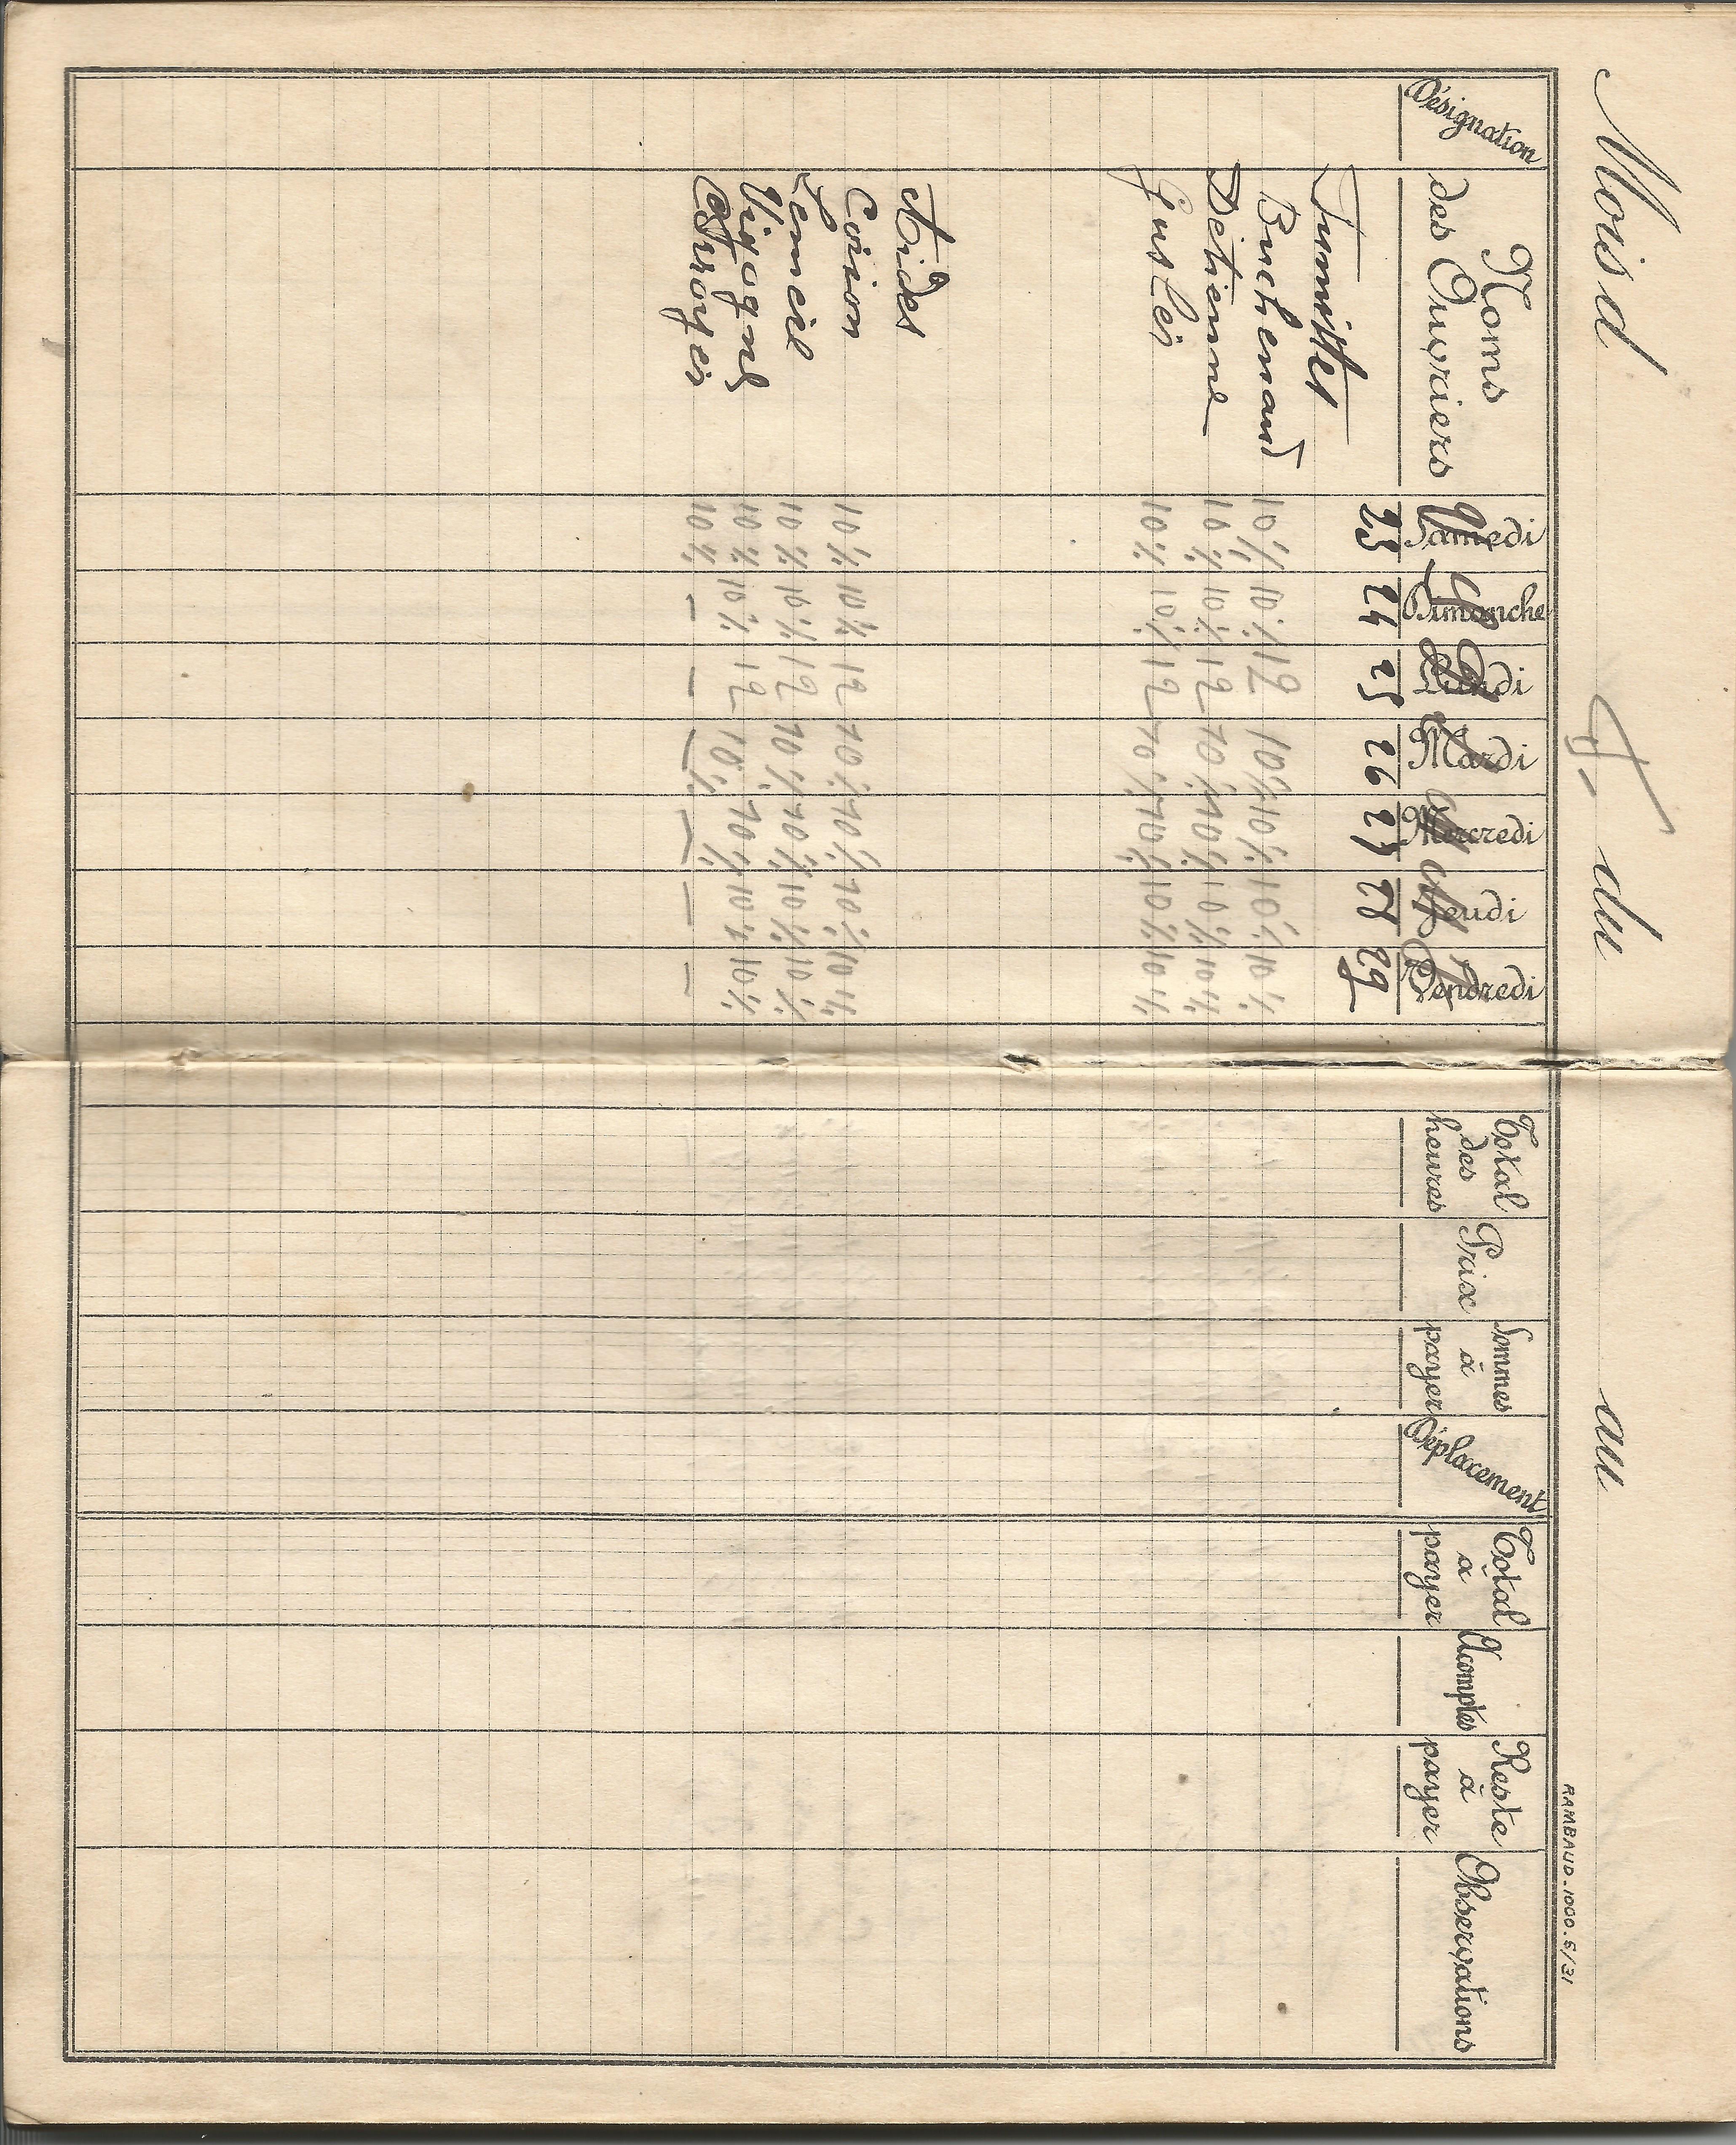 Mois d du au
RAMBAUD. 1000. 5/31
Désignation Noms des Ouvriers Samedi Dimanche Lundi Mardi Mercredi Jeudi Vendredi Total des heures Prix Sommes à payer Déplacement Total à payer Acomptes Reste à payer Observations
23 24 25 26 27 28 29
Fumistes
Buchenaud 10 ½ 10 ½ 12 10 ½ 10 ½ 10 ½ 10 ½
Détienne 10 ½ 10 ½ 12 10 ½ 10 ½ 10 ½ 10 ½
10 ½ 10 ½ 12 10 ½ 10 ½ 10 ½ 10 ½
Aides
10 ½ 10 ½ 12 10 ½ 10 ½ 10 ½ 10 ½
10 ½ 10 ½ 12 10 ½ 10 ½ 10 ½ 10 ½
Vigogne 10 ½ 10 ½ 12 10 ½ 10 ½ 10 ½ 10 ½
10 ½ — — — — — —